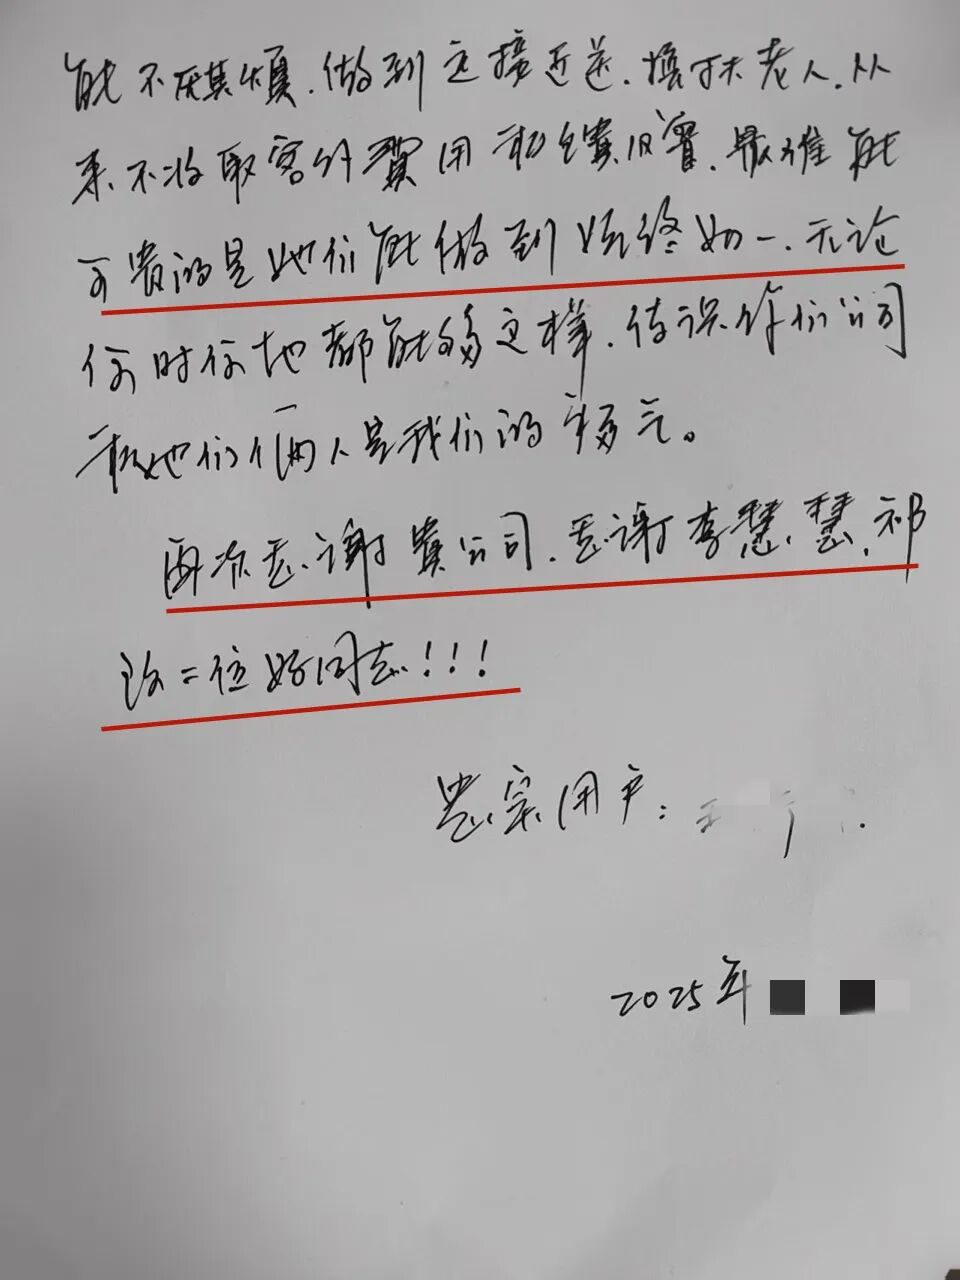 能不厌其烦.做到远接近送.搀扶老人.从
来不收取客外费用和馈赠.最难能
可贵的是她们能做到始终如一.无论
何时何地都能够这样.结识你们公司
和她们俩人是我们的福气。
再次感谢贵公司.感谢李慧慧.祁
二位好同志!!!
忠实用户:王
2025年